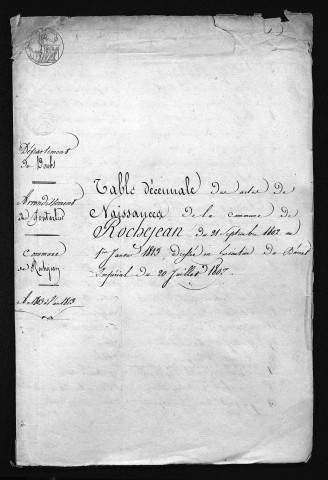 Département
du Doubs
Arrondissement
de Pontarlier
Commune
de Rochejean
Table décennale des actes de
Naissances de la commune de
Rochejean du 21 Septembre 1802 au
1er Janvier 1813 Dressée en Exécution du Décret
Impérial du 20 Juillet 1807.